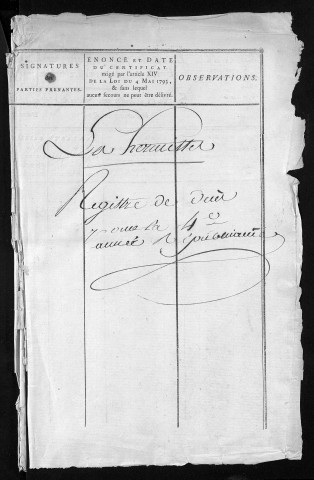 SIGNATURES
DES
PARTIES PRENANTES.
ÉNONCÉ ET DATE
DU CERTIFICAT
exigé par l'article XIV
DE LA LOI DU 4 MAI 1793,
& sans lequel
aucun secours ne peut être délivré.
OBSERVATIONS.
La hermitte
Registre de décè
pour la 4e
année Républicaine